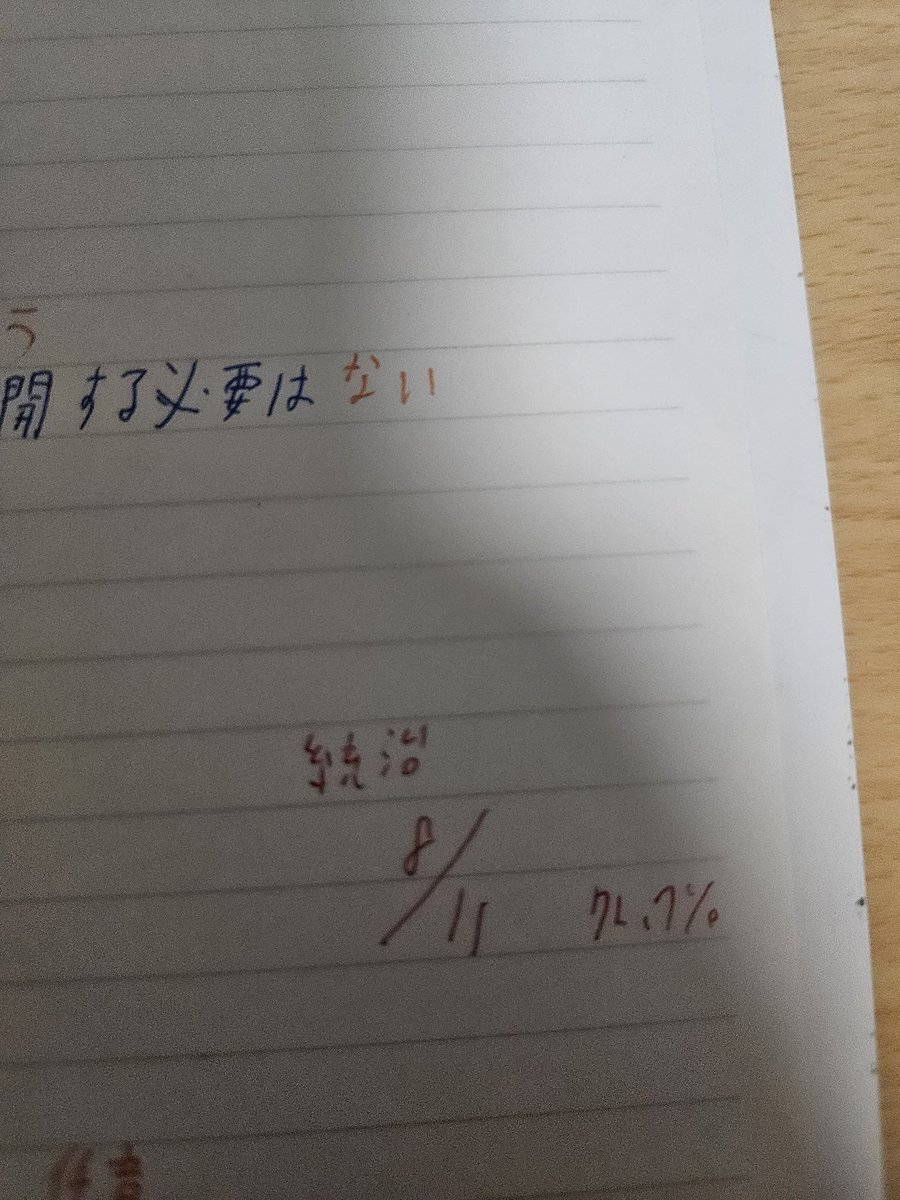 う
開する必要はない
統治
8/11 72.7%